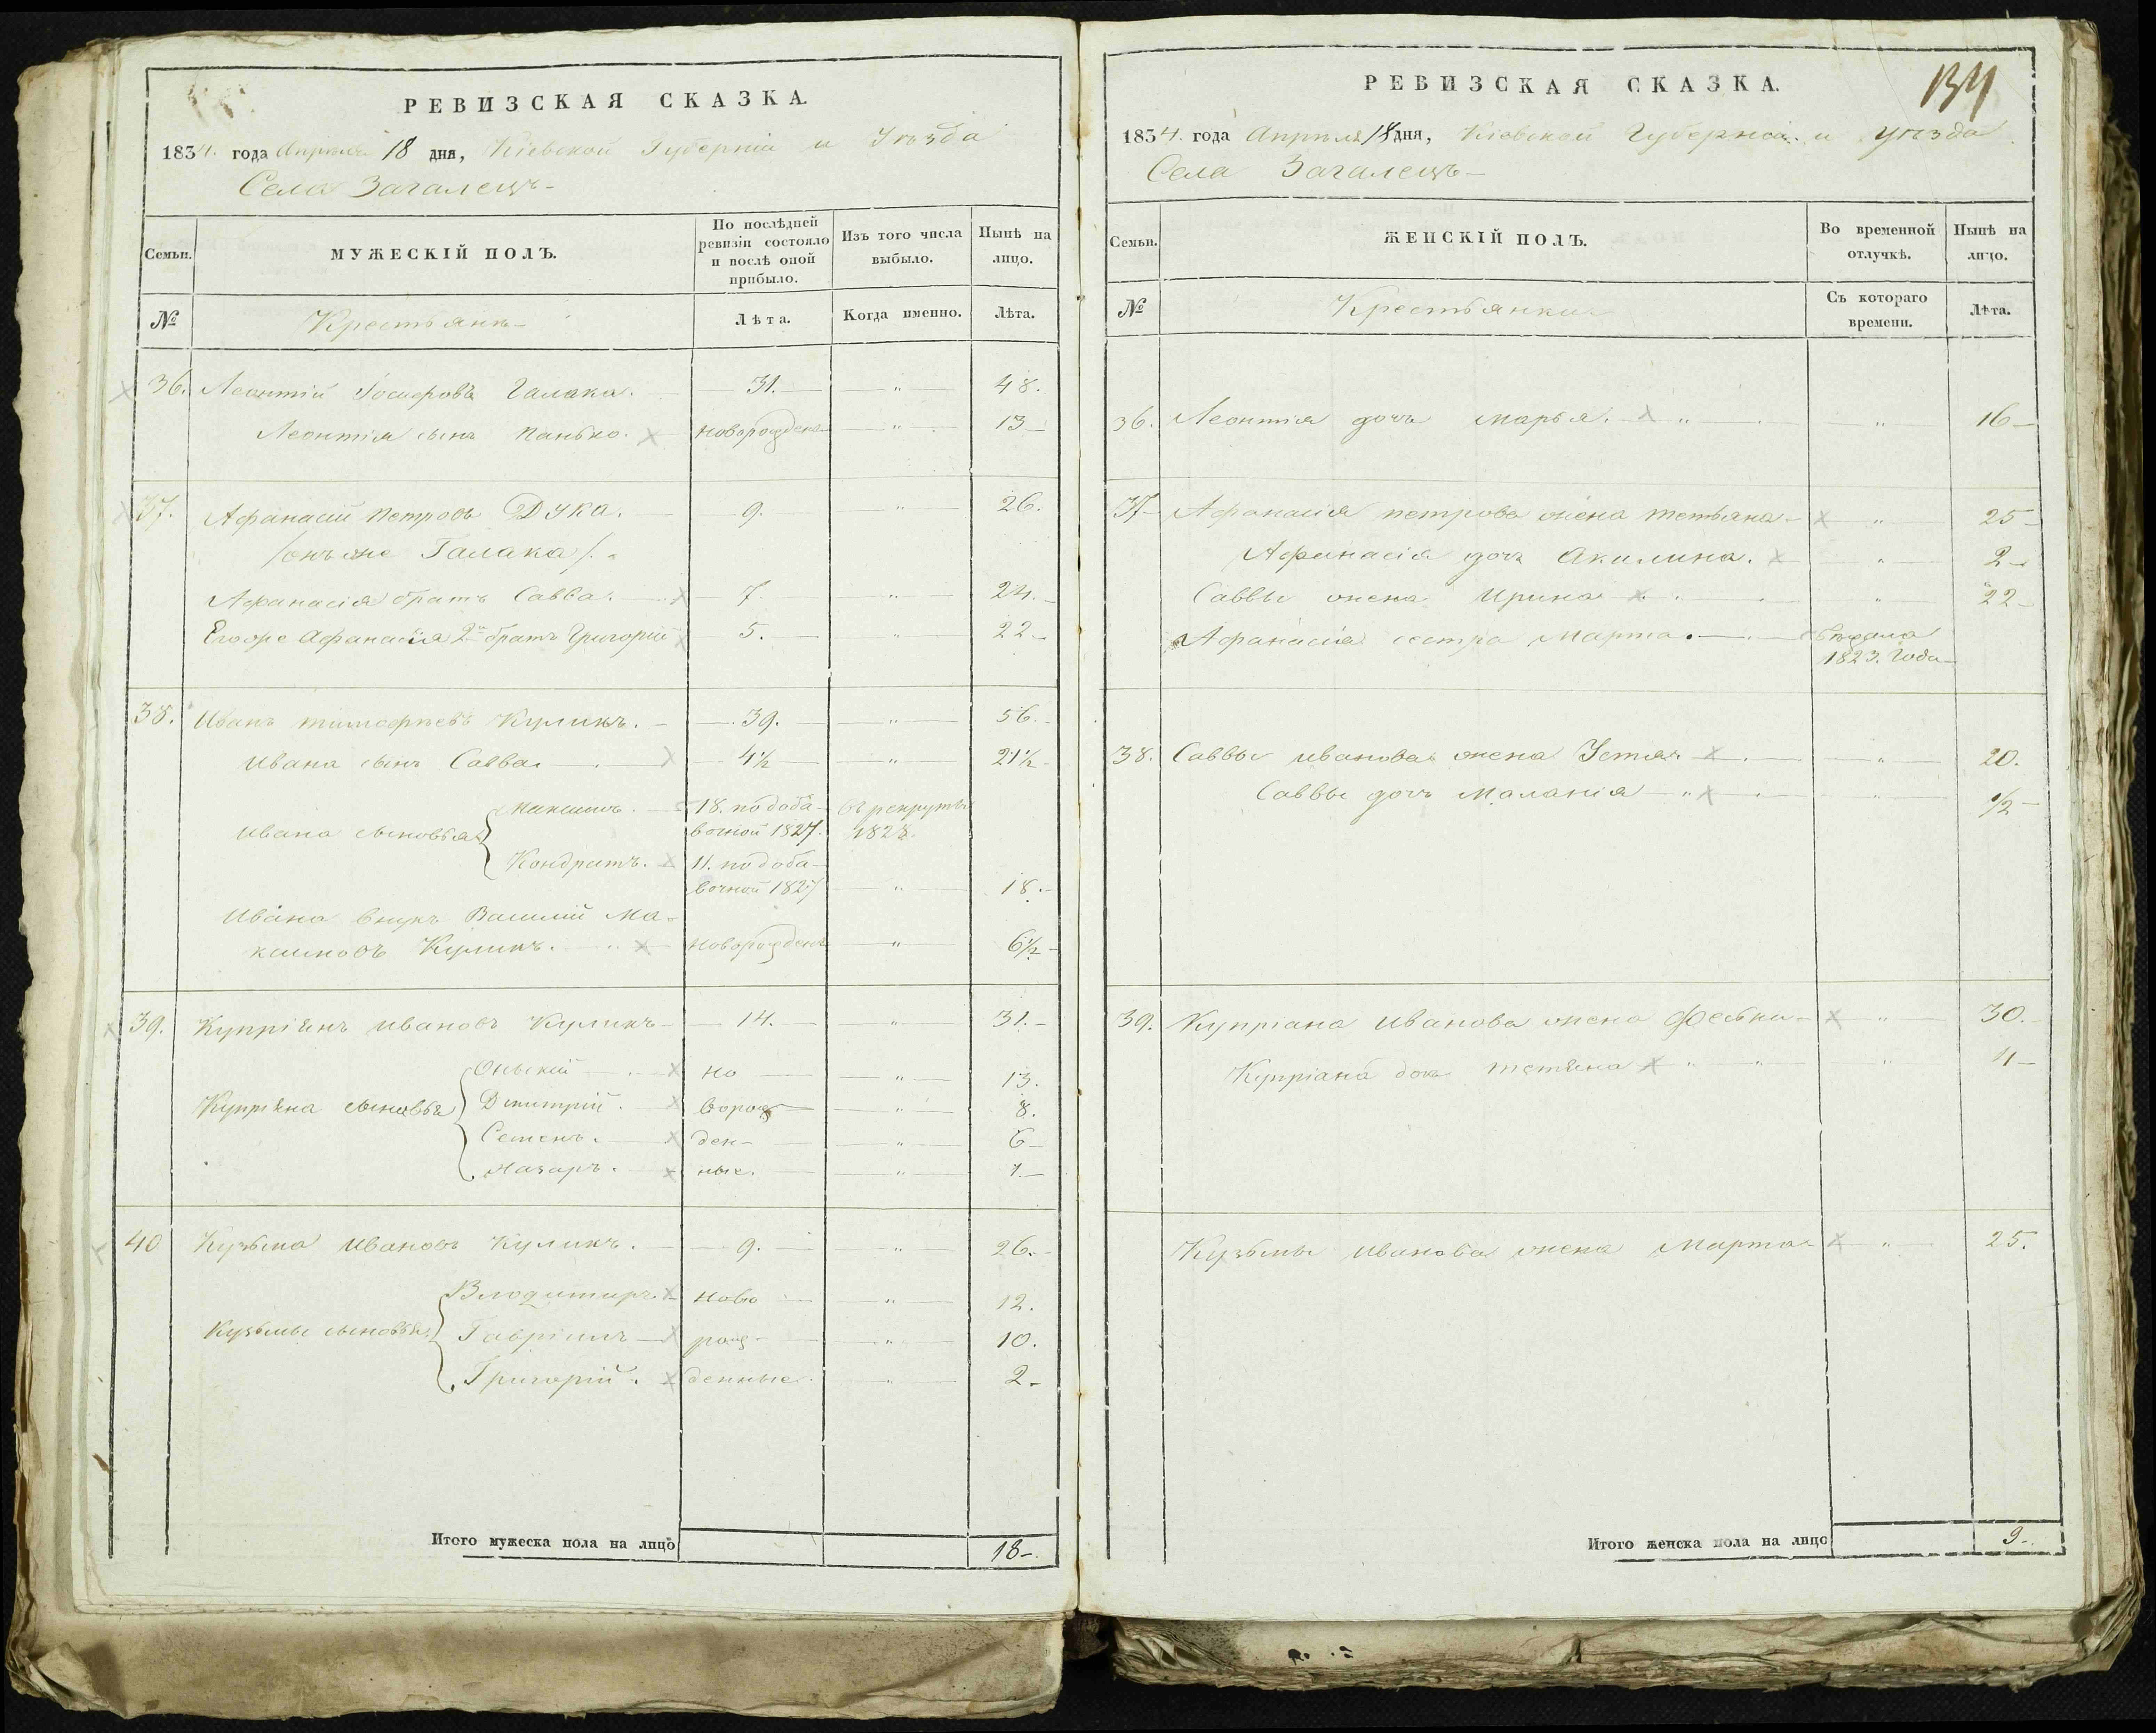 РЕВИЗСКАЯ СКАЗКА.
1834. года Апреля 18 дня, Кіевской Губерніи и Уѣзда
Села Загалецъ
Семьи. МУЖЕСКІЙ ПОЛЪ. По послѣдней ревизіи состояло и послѣ оной прибыло. Изъ того числа выбыло. Нынѣ на лицо.
№ Крестьянъ Лѣта. Когда именно. Лѣта.
36. Леонтій Іосифовъ Галака. 31. " 48.
Леонтія сынъ Панько. новорожденъ " 13
37. Афанасій Петровъ Дука. 9. " 26.
/онъ же Галака/.
Афанасія братъ Савва. 7. " 24.
Егоже Афанасія 2й братъ Григорій 5. " 22
38. Иванъ тимофѣевъ Куликъ. 39. " 56.
Ивана сынъ Савва 4½ " 21½
Максимъ. 18. по доба- въ рекруты
Ивана сыновья вочной 1827. 1828.
Кондратъ. 11. по доба-
вочной 1827 " 18.
Ивана внукъ Василій Ма-
ксимовъ Куликъ. новорожденъ " 6½
39. Купріянъ Ивановъ Куликъ 14. " 31.
Оныскій но " 13.
Купріяна сыновья Дмитрій. ворож " 8.
Семенъ. ден- " 6
Назаръ. ные. " 1
40 Кузьма Ивановъ Куликъ. 9. " 26.
Владимиръ ново " 12.
Кузьмы сыновья Гавріилъ рож- " 10.
Григорій. денные. " 2
Итого мужеска пола на лицо 18
134
РЕВИЗСКАЯ СКАЗКА.
1834. года Апреля 18 дня, Кіевской Губерніи и уѣзда
Села Загалецъ
Семьи. ЖЕНСКІЙ ПОЛЪ. Во временной отлучкѣ. Нынѣ на лицо.
№ Крестьянки Съ котораго времени. Лѣта.
36. Леонтія дочь Марья. " " 16
37 Афанасія петрова жена тетьяна " 25
Афанасія дочь Акилина. " 2
Саввы жена Ирина " 22
Афанасія сестра Марта. бѣжала
1823. года
38. Саввы иванова жена Устя " 20.
Саввы дочь Маланія " " ½
39. Купріана Иванова жена Феська " 30.
Купріана дочь тетяна " " " 11
Кузьмы Иванова жена Марта " 25.
Итого женска пола на лицо 9